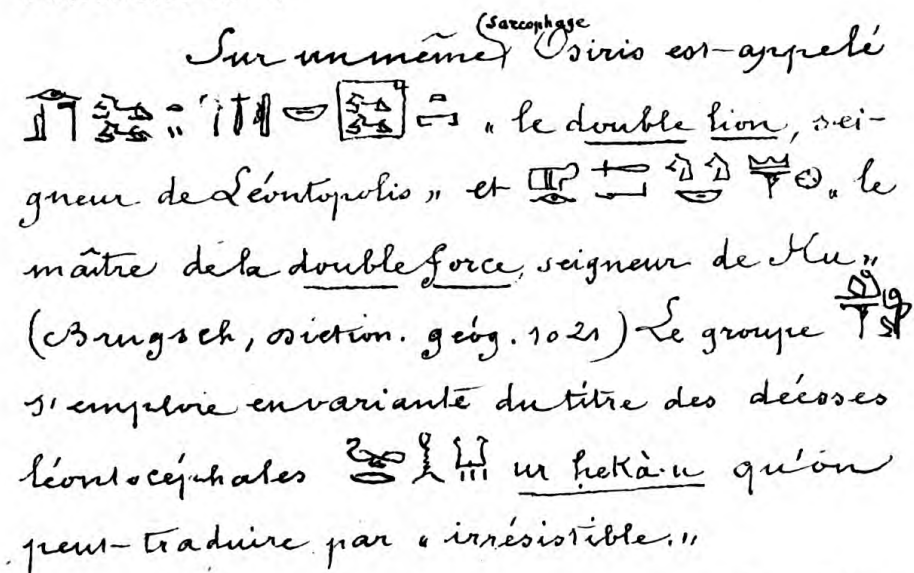 Sur un même sarcophage Osiris est appelé
« le double lion, sei-
gneur de Léontopolis » et « le
maître de la double force, seigneur de Hu »
(Brugsch, diction. géog. 1021) Le groupe
s'emploie en variante du titre des déesses
léontocéphales ur hekà·u qu'on
peut traduire par « irrésistible. »